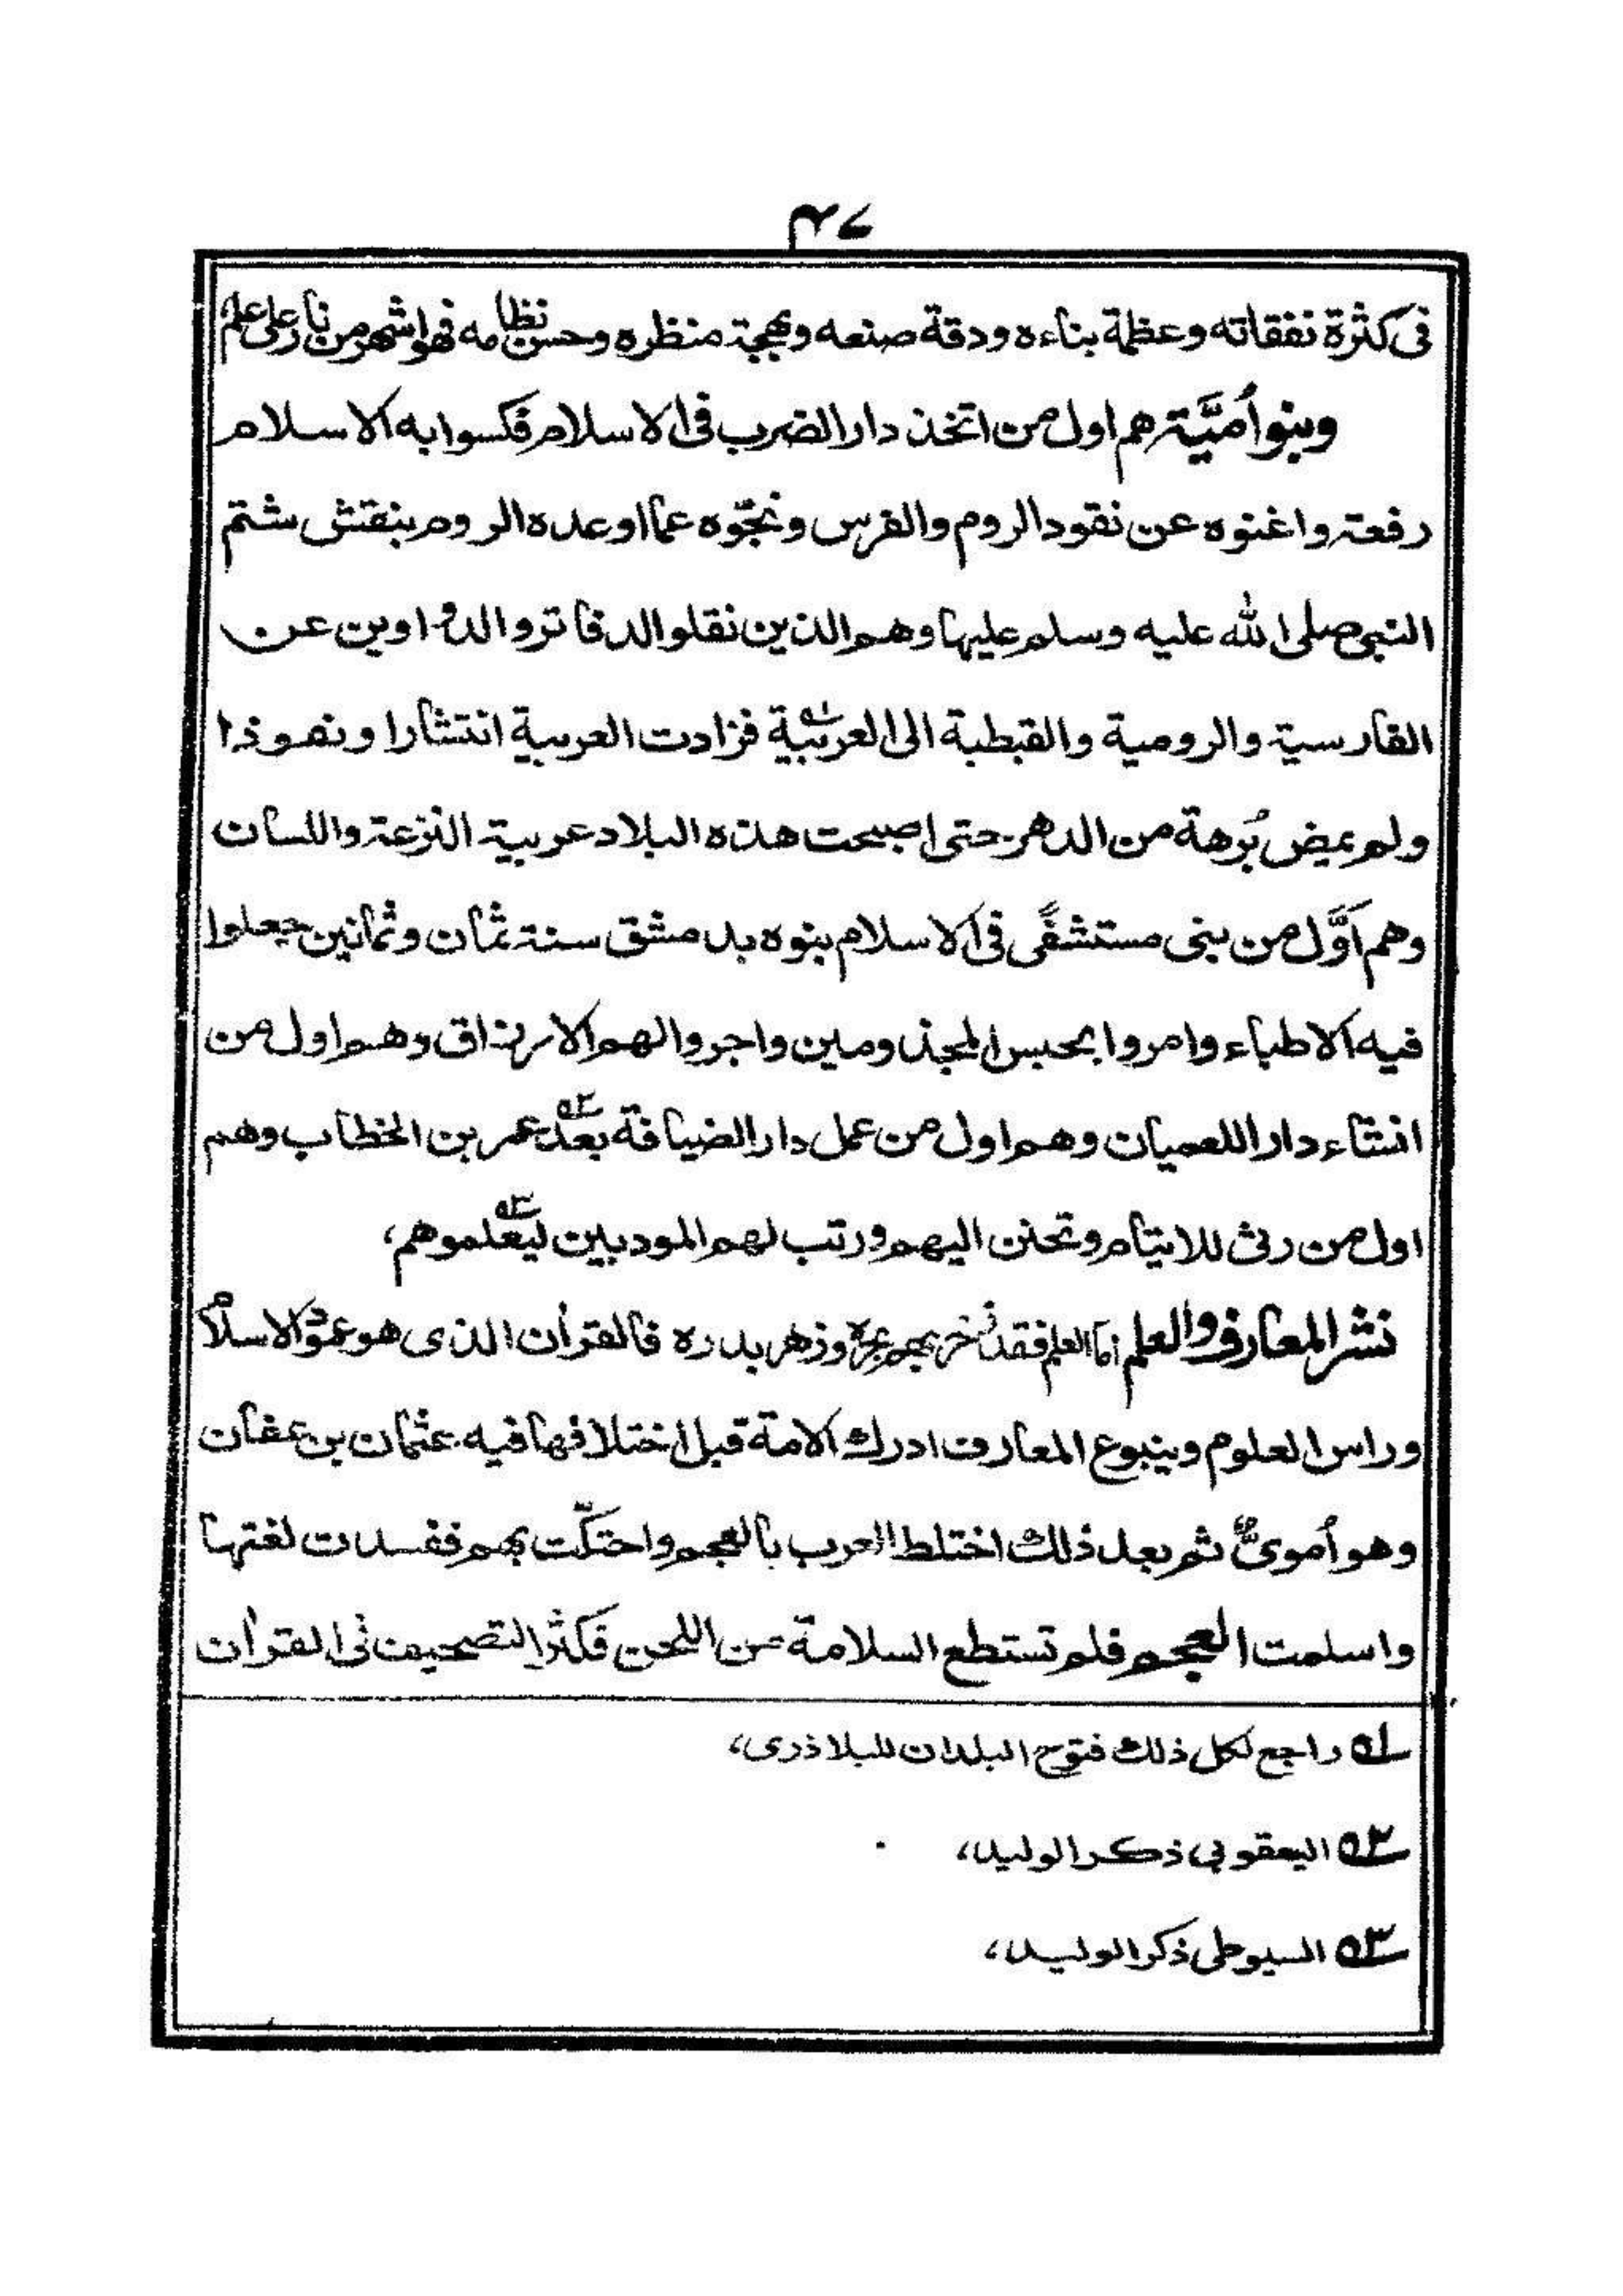 ٤٧
فی کثرة نفقاته وعظمة بناءه ودقة صنعه وبهجة منظره وحسن نظامه فهو اشهر من نار علی علم
وبنو اُمیَّة هم اول من اتخذ دار الضرب فی الاسلام فکسوا به الاسلام
رفعة واغنوه عن نقود الروم والفرس ونجّوه عما اوعده الروم بنقش شتم
النبی صلی الله علیه وسلم علیها وهم الذین نقلوا الدفاتر والدواوین عن
الفارسیة والرومیة والقبطیة الی العربیة ۱ه فزادت العربیة انتشارا ونفوذا
ولم یمض بُرهة من الدهر حتی اصبحت هذه البلاد عربیة النزعة واللسان
وهم اَوَّل من بنی مستشفًی فی الاسلام بنوه بدمشق سنة ثمان وثمانین جعلوا
فیه الاطباء وامروا بحبس المجذومین واجروا لهم الارزاق وهم اول من
انشاء دارا للعمیان وهم اول من عمل دار الضیافة بعد ۲ه عمر بن الخطاب وهم
اول من رثی للایتام وتحنن الیهم ورتب لهم المودبین لیعلموهم ۳ه،
نشر المعارف والعلم اما العلم فقد زخر بهم بحره وزهر بدره فالقرأن الذی هو عمود الاسلام
وراس العلوم وینبوع المعارف ادرك الامة قبل اختلافها فیه عثمان بن عفان
وهو اُمویٌّ ثم بعد ذلك اختلط العرب بالعجم واحتکّت بهم ففسدت لغتها
واسلمت العجم فلم تستطع السلامة من اللحن فکثر التصحیف فی القرأن
۱ه راجع لکل ذلك فتوح البلدان للبلاذری،
۲ه الیعقوبی ذکر الولید،
۳ه السیوطی ذکر الولید،